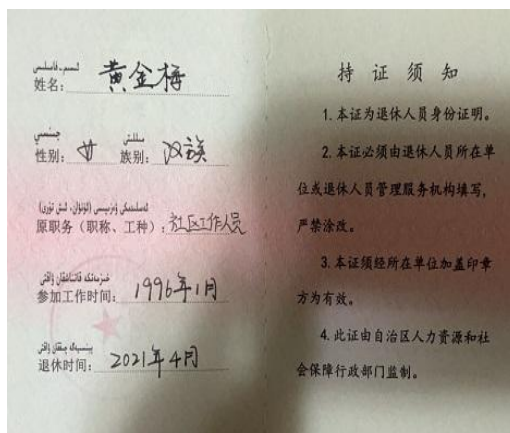 姓名：黄金梅
性别：女 族别：汉族
原职务（职称、工种）：社区工作人员
参加工作时间：1996年1月
退休时间：2021年4月
持证须知
1.本证为退休人员身份证明。
2.本证必须由退休人员所在单
位或退休人员管理服务机构填写，
严禁涂改。
3.本证须经所在单位加盖印章
方为有效。
4.此证由自治区人力资源和社
会保障行政部门监制。